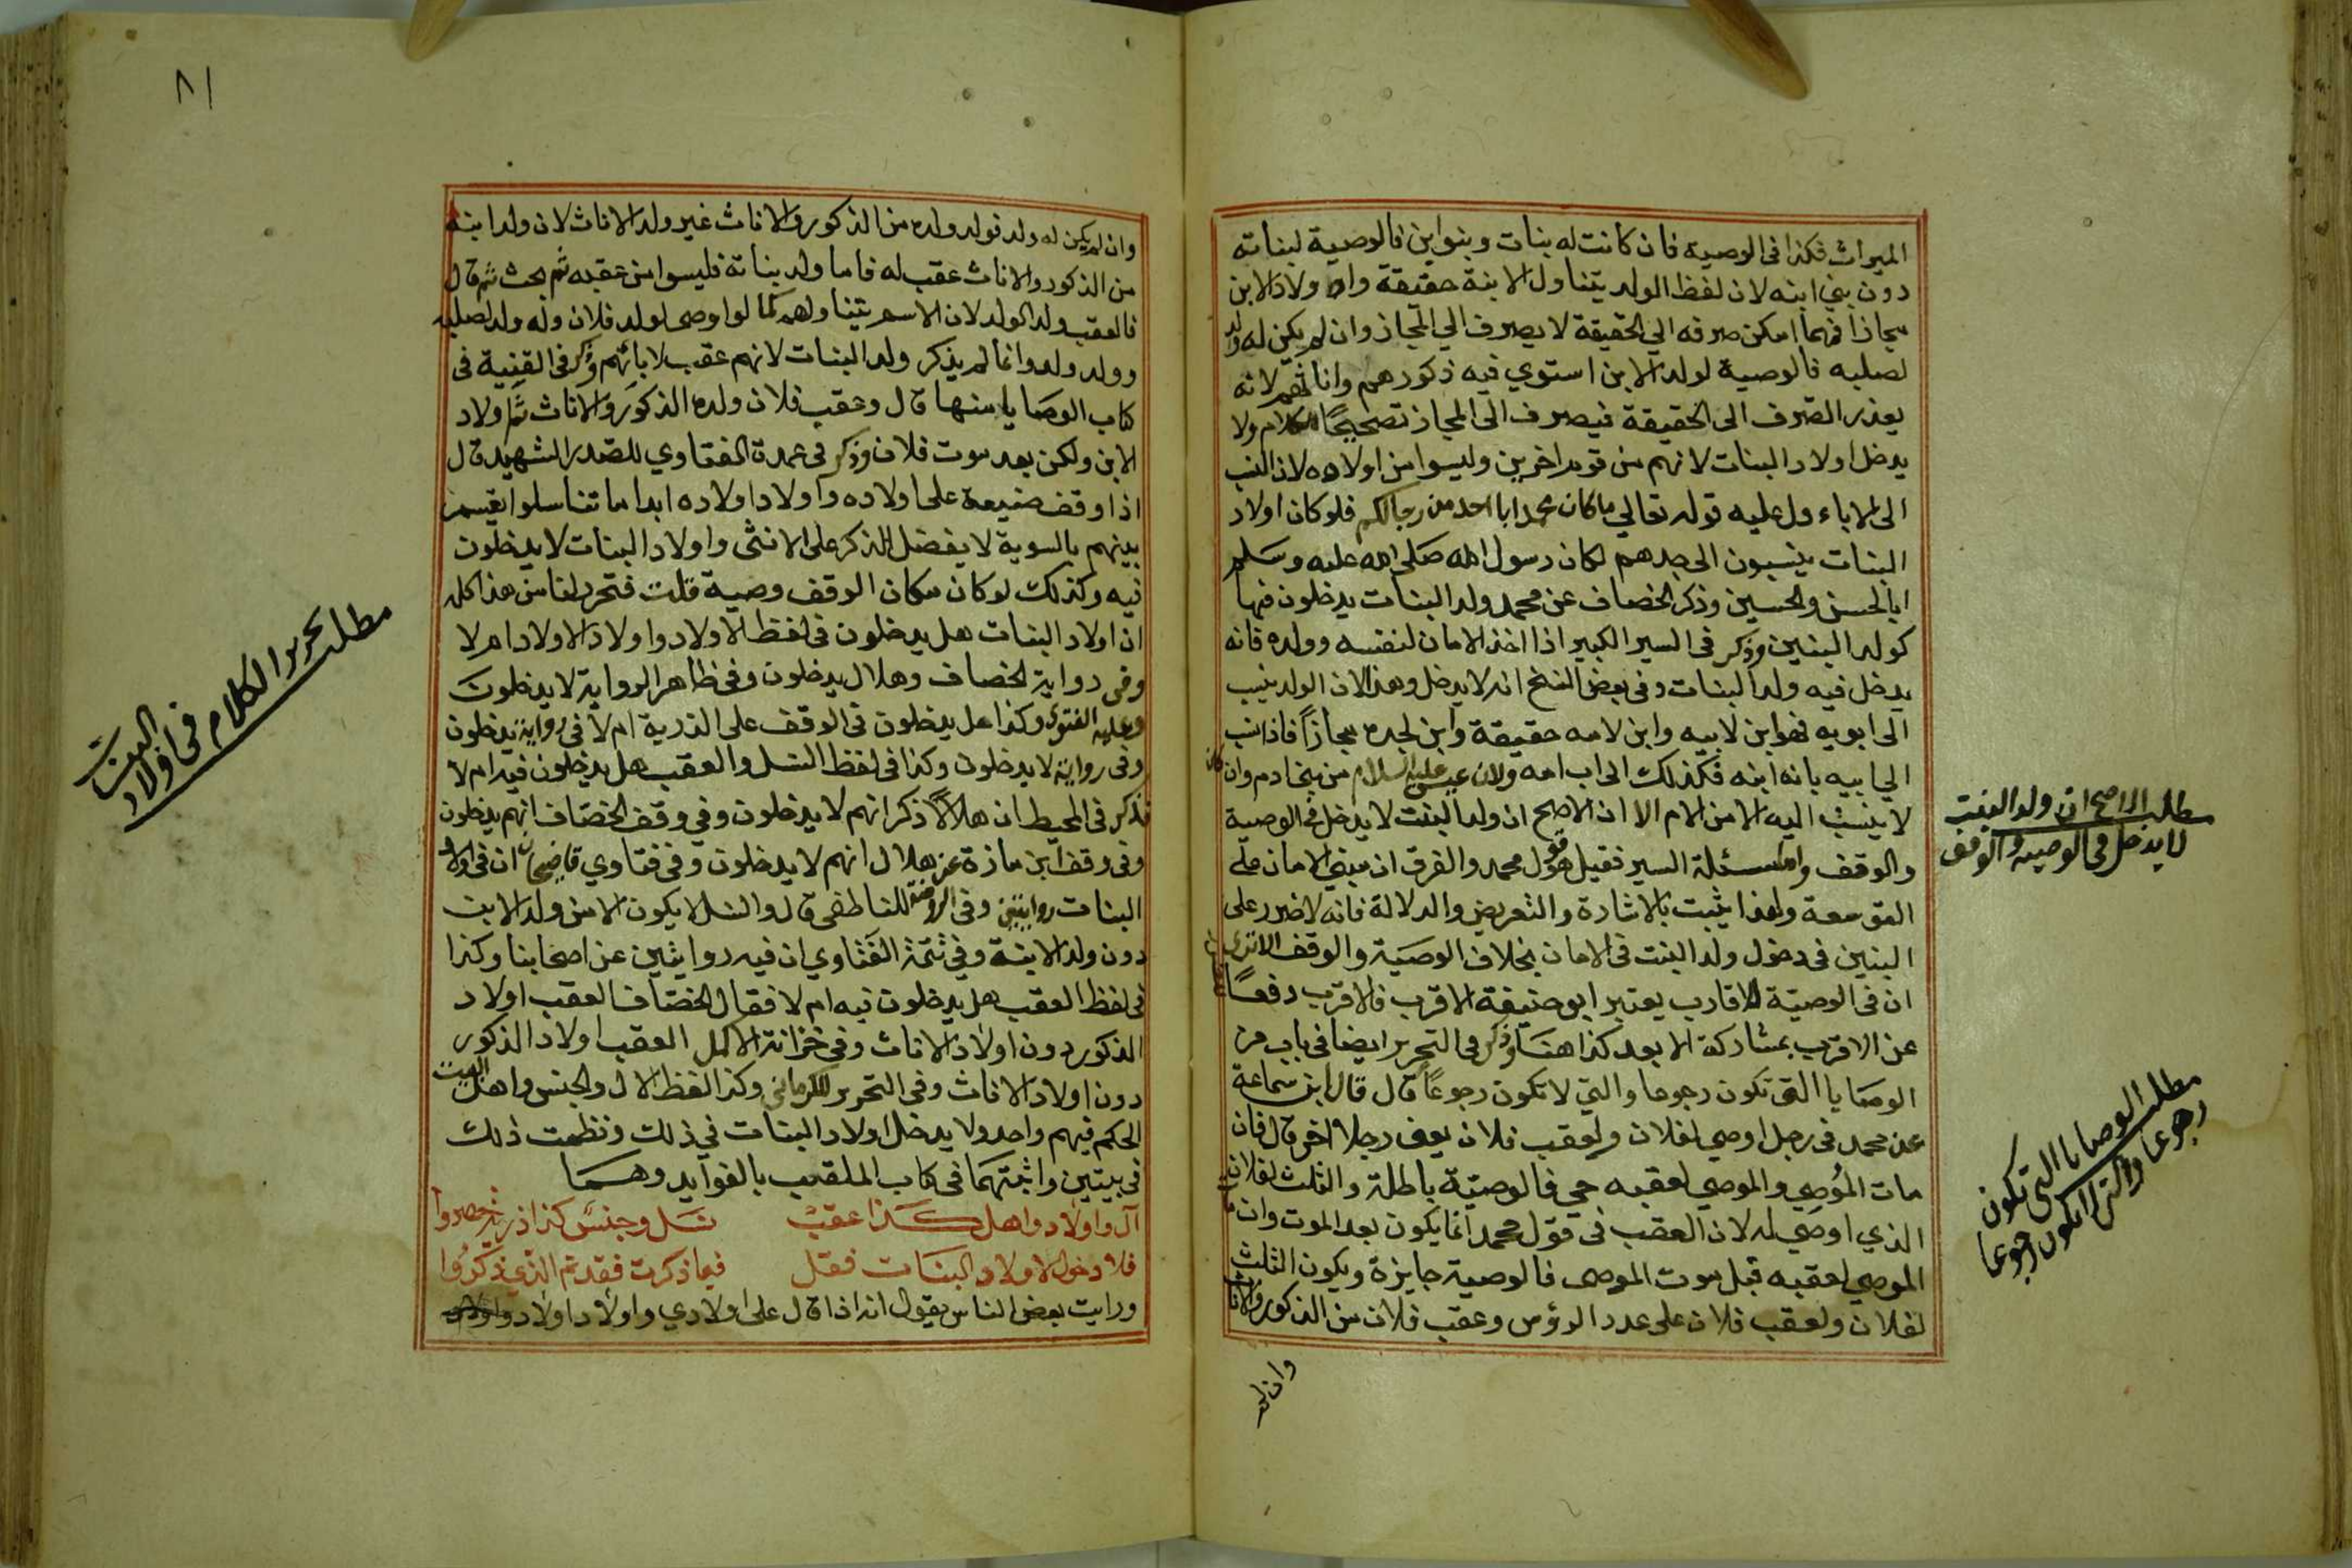 الميراث فكذا في الوصية فان كانت له بنات وبنوابن فالوصية لبناته
دون بني ابنه لان لفظ الولد يتناول الابنة حقيقة واولاد الابن
مجازا فمهما امكن صرفه الي الحقيقة لا يصرف الي المجاز وان لم يكن له ولد
لصلبه فالوصية لولد الابن استوي فيه ذكورهم واناثهم لانه
يعذر الصرف الى الحقيقة فيصرف الى المجاز تصحيحًا للكلام ولا
يدخل اولاد البنات لانهم من قوم اخرين وليسوا من اولاده لان النسب
الى الاباء دل عليه قوله تعالي ما كان محمد ابا احد من رجالكم فلو كان اولاد
البنات ينسبون الى جدهم لكان رسول الله صلى الله عليه وسلم
ابا الحسن والحسين وذكر الخصاف عن محمد ولد البنات يدخلون فيها
كولد البنين وذكر في السير الكبير اذا اخذ الامان لنفسه وولده فانه
يدخل فيه ولد البنات وفي بعض النسخ انه لا يدخل وهذا لان الولد ينسب
الى ابويه فهو ابن لابيه وابن لامه حقيقة وابن لجده مجازًا فاذا نسب
الي ابيه بانه ابنه فكذلك الى اب امه ولان عيسى عليه السلام من بني ادم وان كان
لا ينسب اليه الا من الام الا ان الاصح ان ولد البنت لا يدخل في الوصية
والوقف واما مسئلة السير فقيل هو قول محمد والفرق ان مبنى الامان على
التوسعة ولهذا يثبت بالاشارة والتعريض والدلالة فانه لا ضرر على
البنين في دخول ولد البنت في الامان بخلاف الوصية والوقف الا ترى
ان في الوصية للاقارب يعتبر ابو حنيفة الاقرب فالاقرب دفعًا
عن الاقرب بمشاركة الابعد كذا هنا وذكر في التحرير ايضا في باب من
الوصايا التي تكون رجوعا والتي لا تكون رجوعًا قال قال ابن سماعة
عن محمد في رجل اوصي لفلان ولعقب فلان يعني رجلا اخر قال فان
مات المُوصِي والموصي لعقبه حي فالوصية باطلة والثلث لفلان
الذي اوصي له لان العقب في قول محمد انما يكون بعد الموت وان مات
الموصي لعقبه قبل موت الموصي فالوصية جايزة ويكون الثلث
لفلان ولعقب فلان على عدد الرؤس وعقب فلان من الذكور والاناث
وان لم
مطلب الاصح ان ولد البنت
لا يدخل في الوصية والوقف
مطلب الوصايا التي تكون
رجوعا والتي لا تكون رجوعا
٨١
وان لم يكن له ولد فولد ولده من الذكور والاناث غير ولد الاناث لان ولد ابنه
من الذكور والاناث عقب له فاما ولد بناته فليسوا من عقبه ثم بحث ثم قال
فالعقب ولد الولد لان الاسم يتناولهم كما لو اوصى لولد فلان وله ولد لصلبه
وولد ولد وانما لم يذكر ولد البنات لانهم عقب لابائهم وذكر في القنية في
كتاب الوصايا منها قال وعقب فلان ولده الذكور والاناث ثم اولاد
الابن ولكن بعد موت فلان وذكر في عمدة المفتاوي للصدر الشهيد قال
اذا وقف ضيعة على اولاده واولاد اولاده ابدا ما تناسلوا يقسم
بينهم بالسوية لا يفضل الذكر على الانثى واولاد البنات لا يدخلون
فيه وكذلك لو كان مكان الوقف وصية قلت فتحرر لنا من هذا كله
ان اولاد البنات هل يدخلون في لفظ الاولاد واولاد الاولاد ام لا
وفي رواية الخصاف وهلال يدخلون وفي ظاهر الرواية لا يدخلون
وعليه الفتوى وكذا هل يدخلون في الوقف على الذرية ام لا في رواية يدخلون
وفي رواية لا يدخلون وكذا في لفظ النسل والعقب هل يدخلون فيه ام لا
فذكر في المحيط ان هلالًا ذكر انهم لا يدخلون وفي وقف الخصاف انهم يدخلون
وفي وقف ابن مازة عن هلال انهم لا يدخلون وفي فتاوي قاضيخان ان في اولاد
البنات روايتين وفي الروضة للناطفي قال والنسل لا يكون الا من ولد الابن
دون ولد الابنة وفي تتمة الفتاوي ان فيه روايتين عن اصحابنا وكذا
في لفظ العقب هل يدخلون فيه ام لا فقال الخصاف العقب اولاد
الذكور دون اولاد الاناث وفي خزانة الاكمل العقب اولاد الذكور
دون اولاد الاناث وفي التحرير للكرماني وكذا لفظ الال والجنس واهل البيت
الحكم فيهم واحد ولا يدخل اولاد البنات في ذلك ونظمت ذلك
في بيتين واثبتهما في كتاب الملقب بالفوايد وهما
آل واولاد واهل كذا عقب نسل وجنس كذا ذرية حصروا
فلا دخول لاولاد البنات فقل فيما ذكرت فقد تم الذي ذكرُوا
ورايت بعض الناس يقول انه اذا قال على اولادي واولاد اولاد
مطلب تحرير الكلام في اولاد
البنت